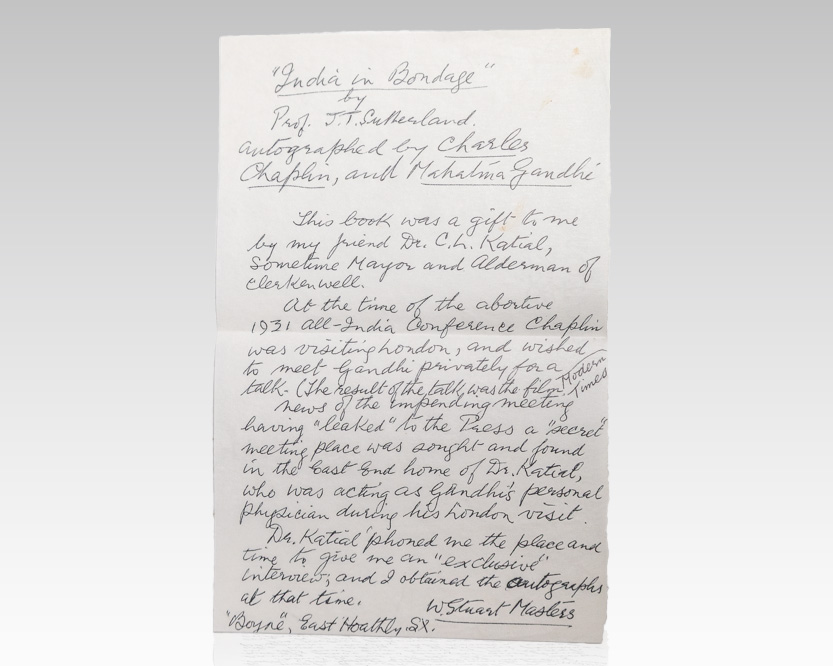 "India in Bondage"
by
Prof. J.T. Sutherland.
autographed by Charles
Chaplin, and Mahatma Gandhi
This book was a gift to me
by my friend Dr. C.L. Katial,
Sometime Mayor and Alderman of
Clerkenwell.
At the time of the abortive
1931 All-India Conference Chaplin
was visiting London, and wished
to meet Gandhi privately for a
talk. (The result of the talk was the film Modern Times
news of the impending meeting
having "leaked" to the Press a "secret"
meeting place was sought and found
in the East End home of Dr. Katial,
who was acting as Gandhi's personal
physician during his London visit.
Dr. Katial 'phoned me the place and
time to give me an "exclusive"
interview, and I obtained the autographs
at that time.
W. Stuart Masters
"Boyne", East Hoathly, SX.